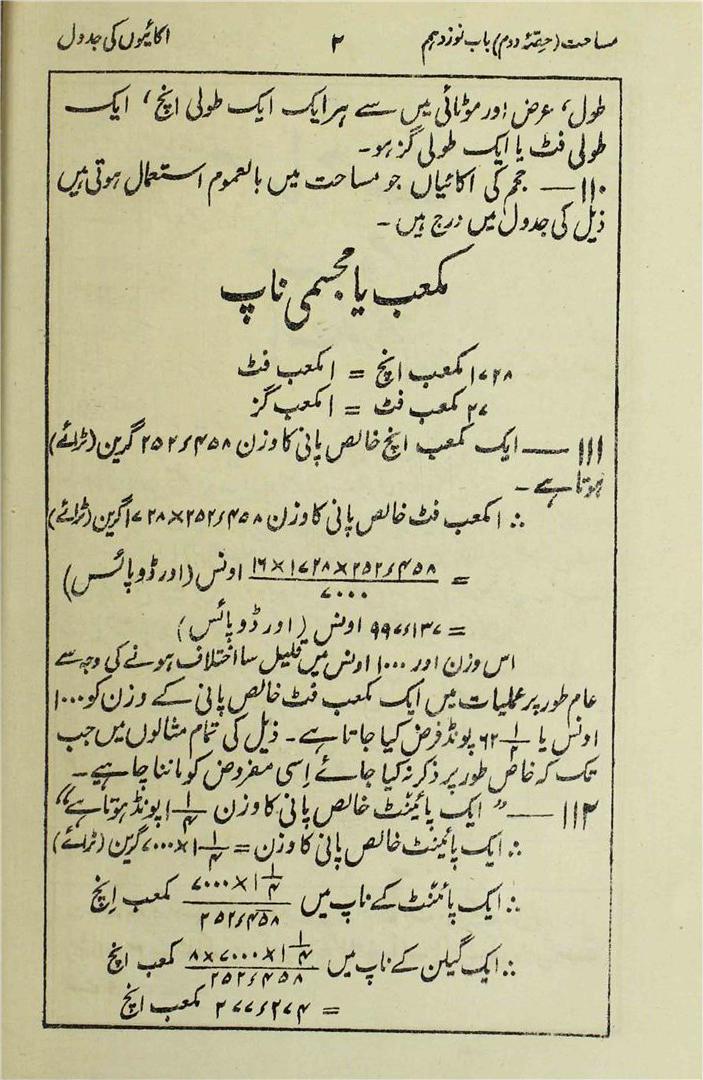 مساحت (حصّۂ دوم) باب نوزدہم ۲ اکائیوں کی جدول
طول، عرض اور موٹائی میں سے ہر ایک ایک طولی انچ، ایک
طولی فٹ یا ایک طولی گز ہو۔
۱۱۰— حجم کی اکائیاں جو مساحت میں بالعموم استعمال ہوتی ہیں
ذیل کی جدول میں درج ہیں۔
مکعب یا مجسمی ناپ
۱۷۲۸ مکعب انچ = ۱ مکعب فٹ
۲۷ مکعب فٹ = ۱ مکعب گز
۱۱۱— ایک مکعب انچ خالص پانی کا وزن ۲۵۲٫۴۵۸ گرین (ٹرائے)
ہوتا ہے۔
∴ ۱ مکعب فٹ خالص پانی کا وزن ۲۵۲٫۴۵۸×۱۷۲۸ گرین (ٹرائے)
= ۲۵۲٫۴۵۸×۱۷۲۸×۱۶ / ۷۰۰۰ اونس (اورڈوپائس)
= ۹۹۷٫۱۳۷ اونس (اورڈوپائس)
اس وزن اور ۱۰۰۰ اونس میں قلیل سا اختلاف ہونے کی وجہ سے
عام طور پر عملیات میں ایک مکعب فٹ خالص پانی کے وزن کو ۱۰۰۰
اونس یا ۶۲ ۱/۲ پونڈ فرض کیا جاتا ہے۔ ذیل کی تمام مثالوں میں جب
تک کہ خاص طور پر ذکر نہ کیا جائے اِسی مفروض کو ماننا چاہیے۔
۱۱۲— "ایک پائینٹ خالص پانی کا وزن ۱ ۱/۴ پونڈ ہوتا ہے"
∴ ایک پائینٹ خالص پانی کا وزن = ۱ ۱/۴×۷۰۰۰ گرین (ٹرائے)
∴ ایک پائنٹ کے ناپ میں ۱ ۱/۴×۷۰۰۰ / ۲۵۲٫۴۵۸ مکعب اِنچ
∴ ایک گیلن کے ناپ میں ۱ ۱/۴×۷۰۰۰×۸ / ۲۵۲٫۴۵۸ مکعب انچ
= ۲۷۷٫۲۷۴ مکعب انچ